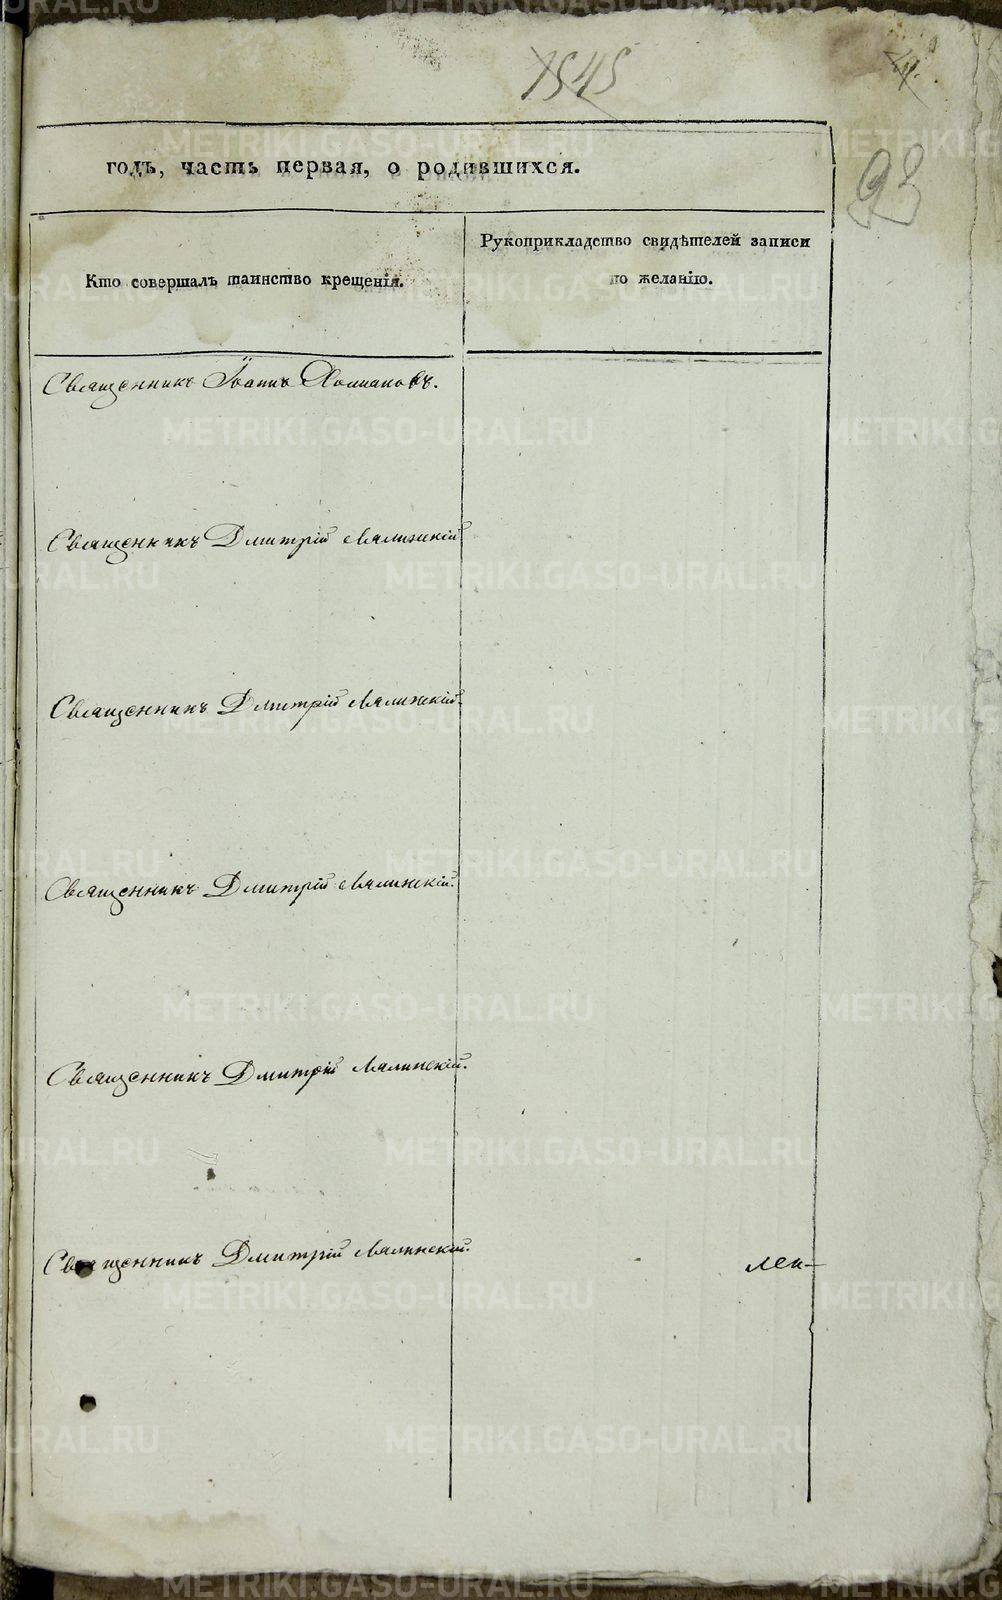 1545
93
годъ, часть первая, о родившихся.
Кто совершалъ таинство крещенія.
Рукоприкладство свидѣтелей записи
по желанію.
Священникъ Іоаннъ
Священникъ Дмитрій Лялинскій
Священникъ Дмитрій Лялинскій.
Священникъ Дмитрій Лялинскій.
Священникъ Дмитрій Лялинскій.
Священникъ Дмитрій Лялинскій.
METRIKI.GASO-URAL.RU